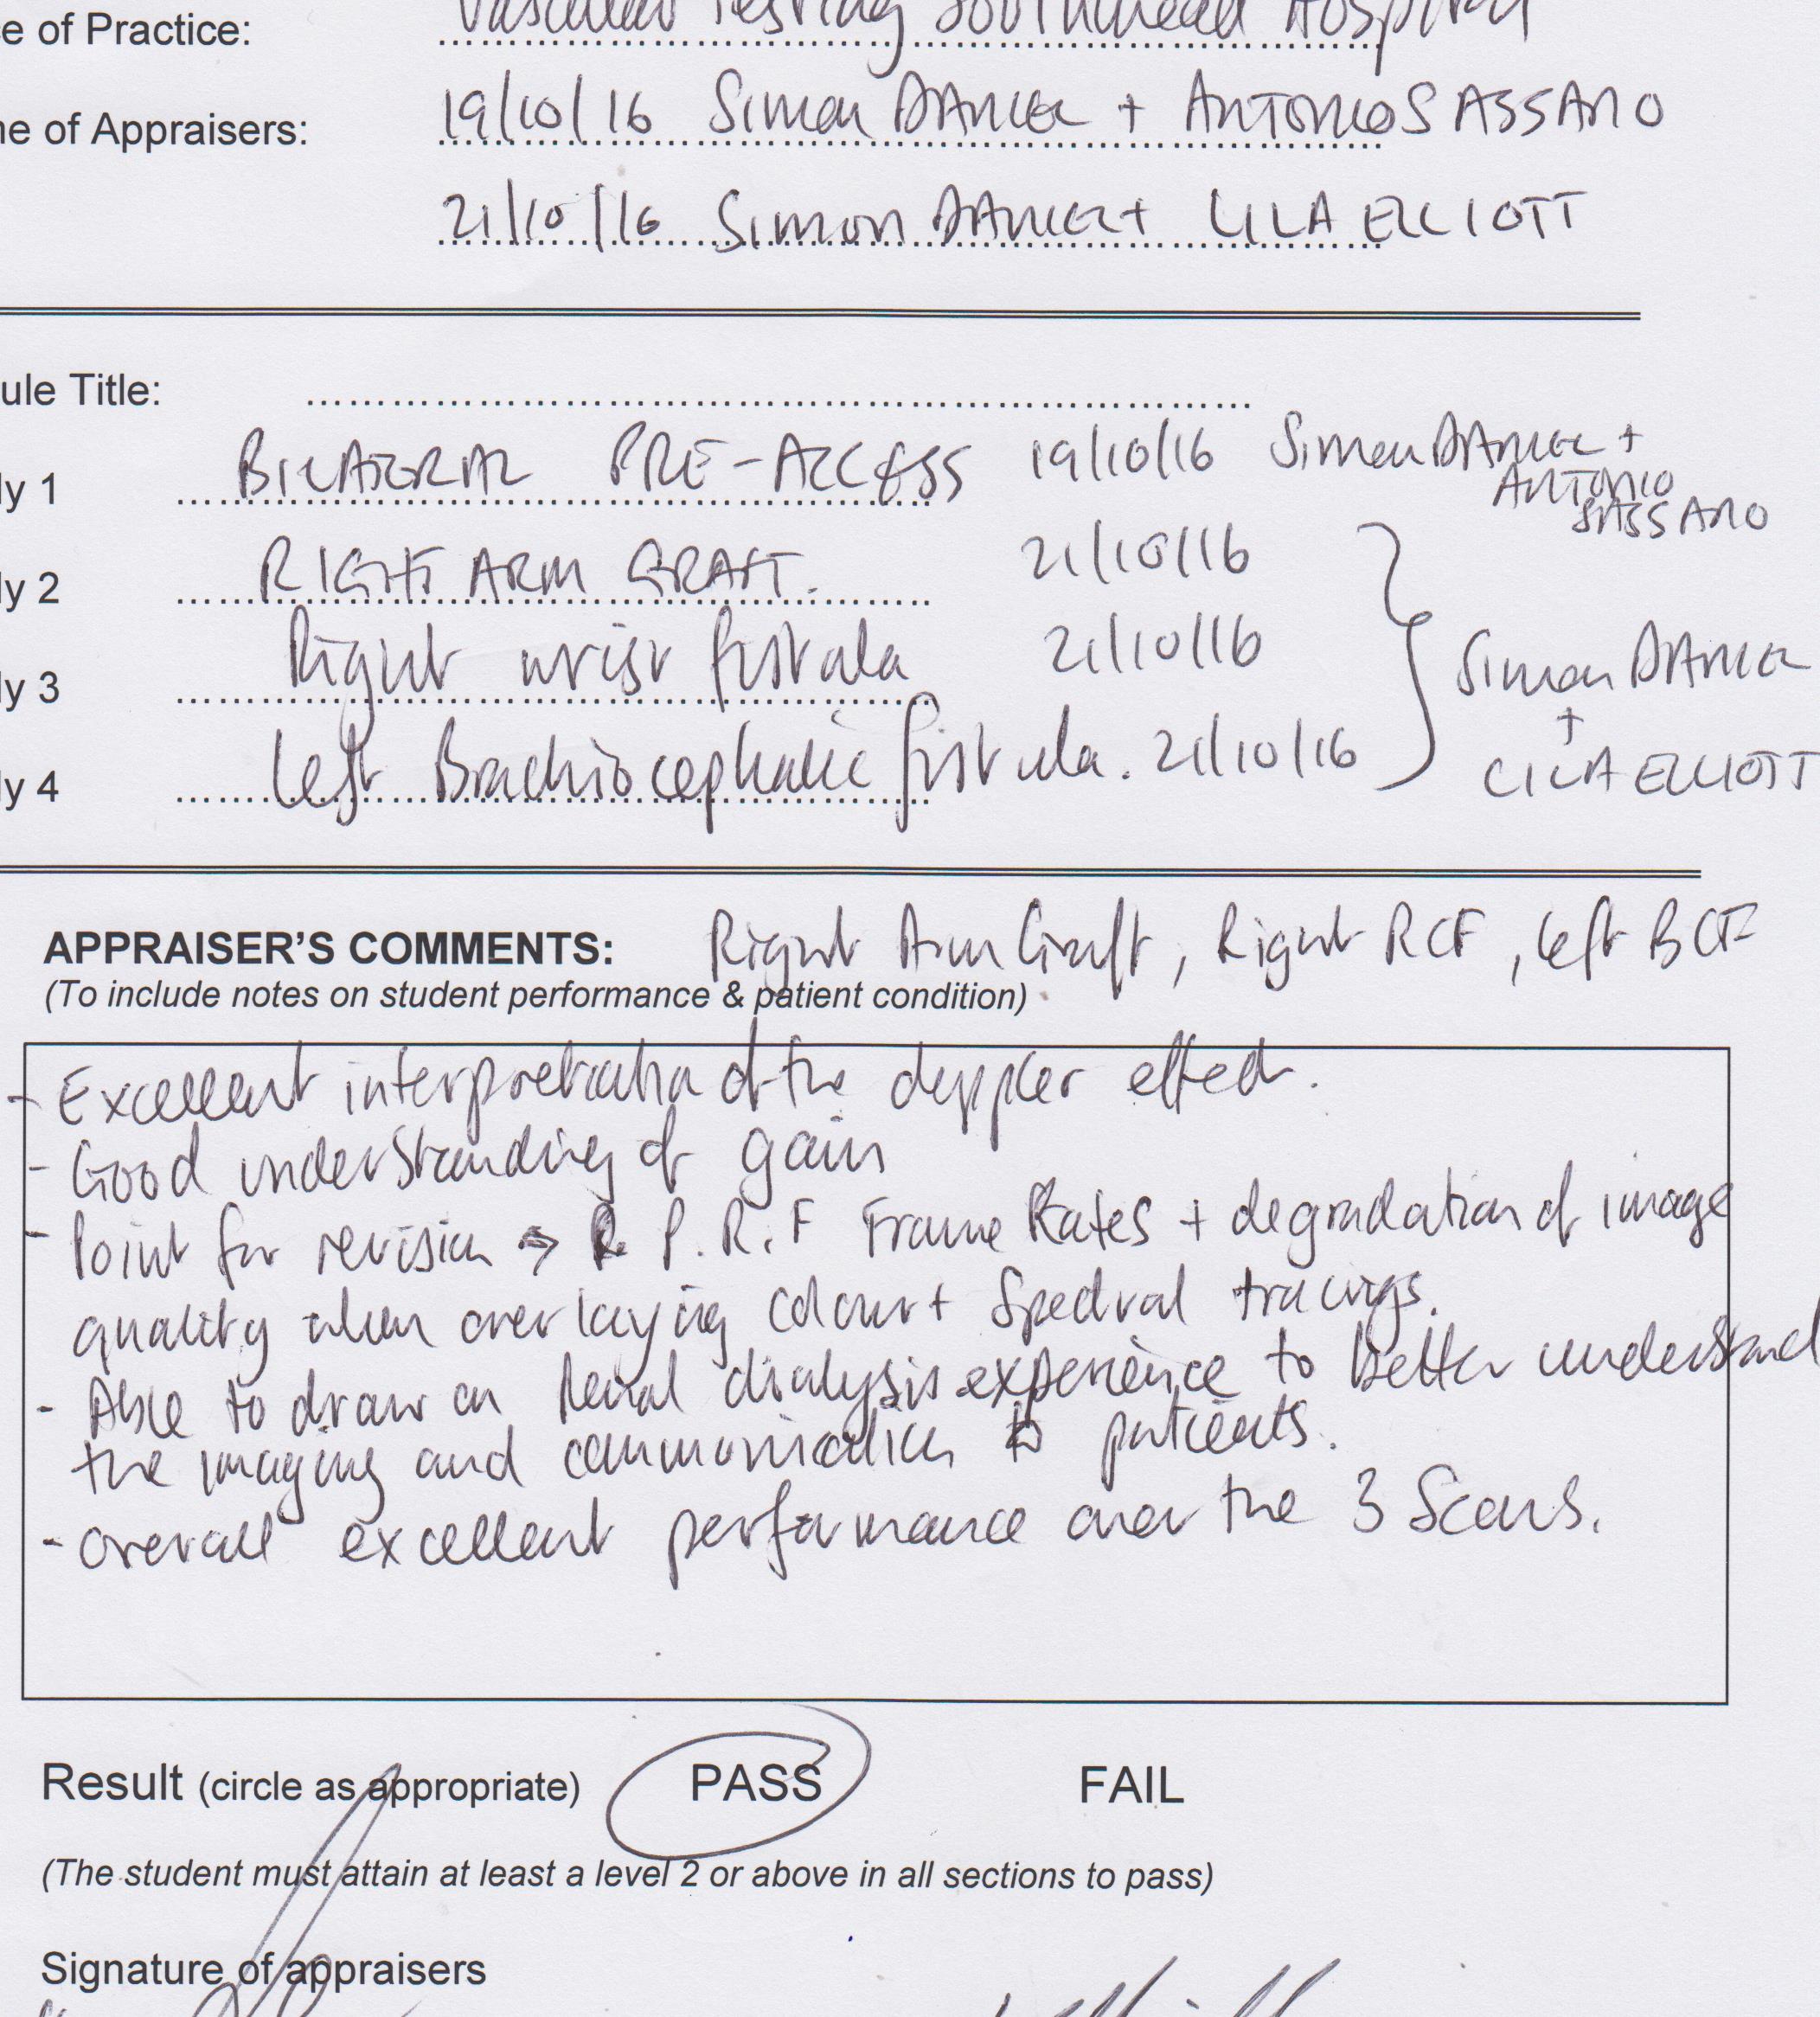 e of Practice: Vascular Testing Southmead Hospital
ne of Appraisers: 19/10/16 Simon DANIEL + ANTONIO SASSANO
21/10/16 Simon DANIEL + LILA ELLIOTT
ule Title:
ly 1 BILATERAL PRE-ACCESS 19/10/16 Simon DANIEL +
ANTONIO
SASSANO
ly 2 RIGHT ARM GRAFT. 21/10/16
ly 3 Right wrist fistula 21/10/16 Simon DANIEL
+
ly 4 left Brachiocephalic fistula. 21/10/16 LILA ELLIOTT
APPRAISER'S COMMENTS: Right Arm Graft, Right RCF, left BCF
(To include notes on student performance & patient condition)
- Excellent interpretation of the doppler effect.
- Good understanding of gain
- Point for revision → P.R.F Frame Rates + degradation of image
quality when overlaying colour + Spectral tracings.
- Able to draw on renal dialysis experience to better understand
the imaging and communication to patients.
- overall excellent performance over the 3 Scans.
Result (circle as appropriate) PASS FAIL
(The student must attain at least a level 2 or above in all sections to pass)
Signature of appraisers